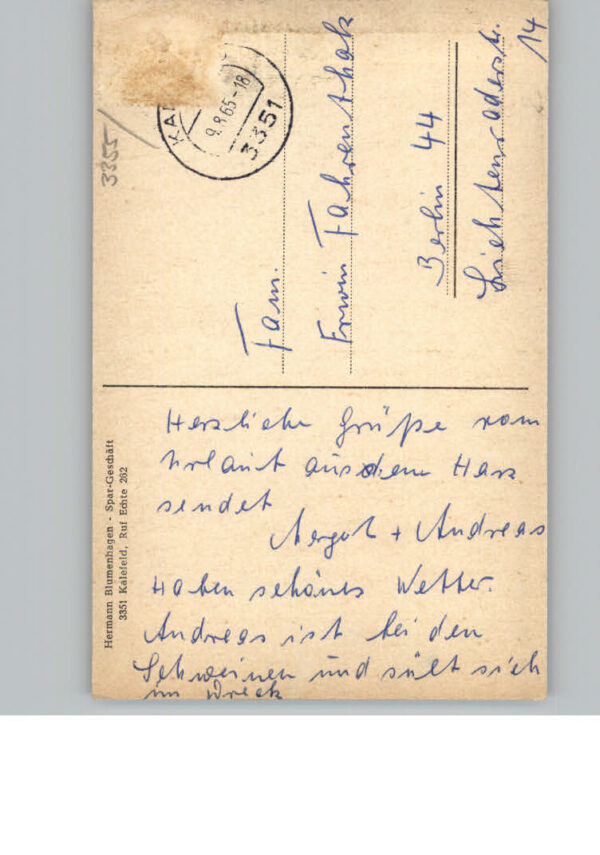 3355
KA
9.8.65-18
3351
Fam.
Erwin Fahrenthok
Berlin 44
Lichtenraderstr.
14
Herzliche Grüße vom
Urlaub aus dem Harz
sendet
+ Andreas
Haben schönes Wetter.
Andreas ist bei den
Schweinen und sült sich
im Dreck
Hermann Blumenhagen - Spar-Geschäft
3351 Kalefeld, Ruf Echte 262